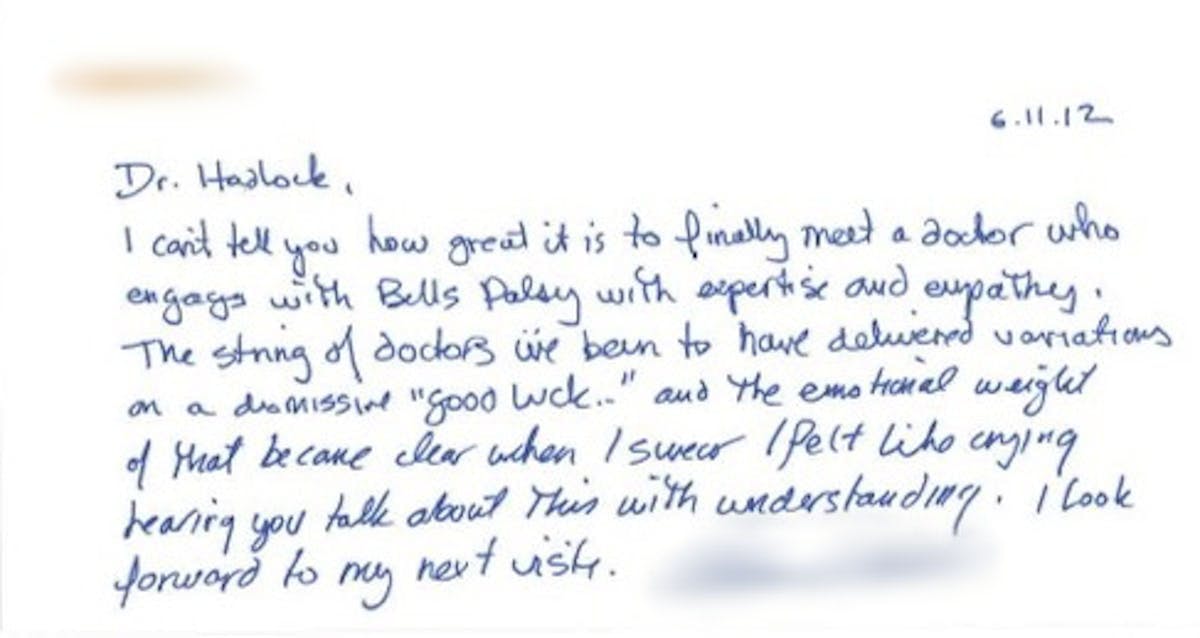 6.11.12
Dr. Hadlock,
I can't tell you how great it is to finally meet a doctor who
engages with Bells Palsy with expertise and empathy.
The string of doctors I've been to have delivered variations
on a dismissive "good luck..." and the emotional weight
of that became clear when I swear I felt like crying
hearing you talk about this with understanding. I look
forward to my next visit.